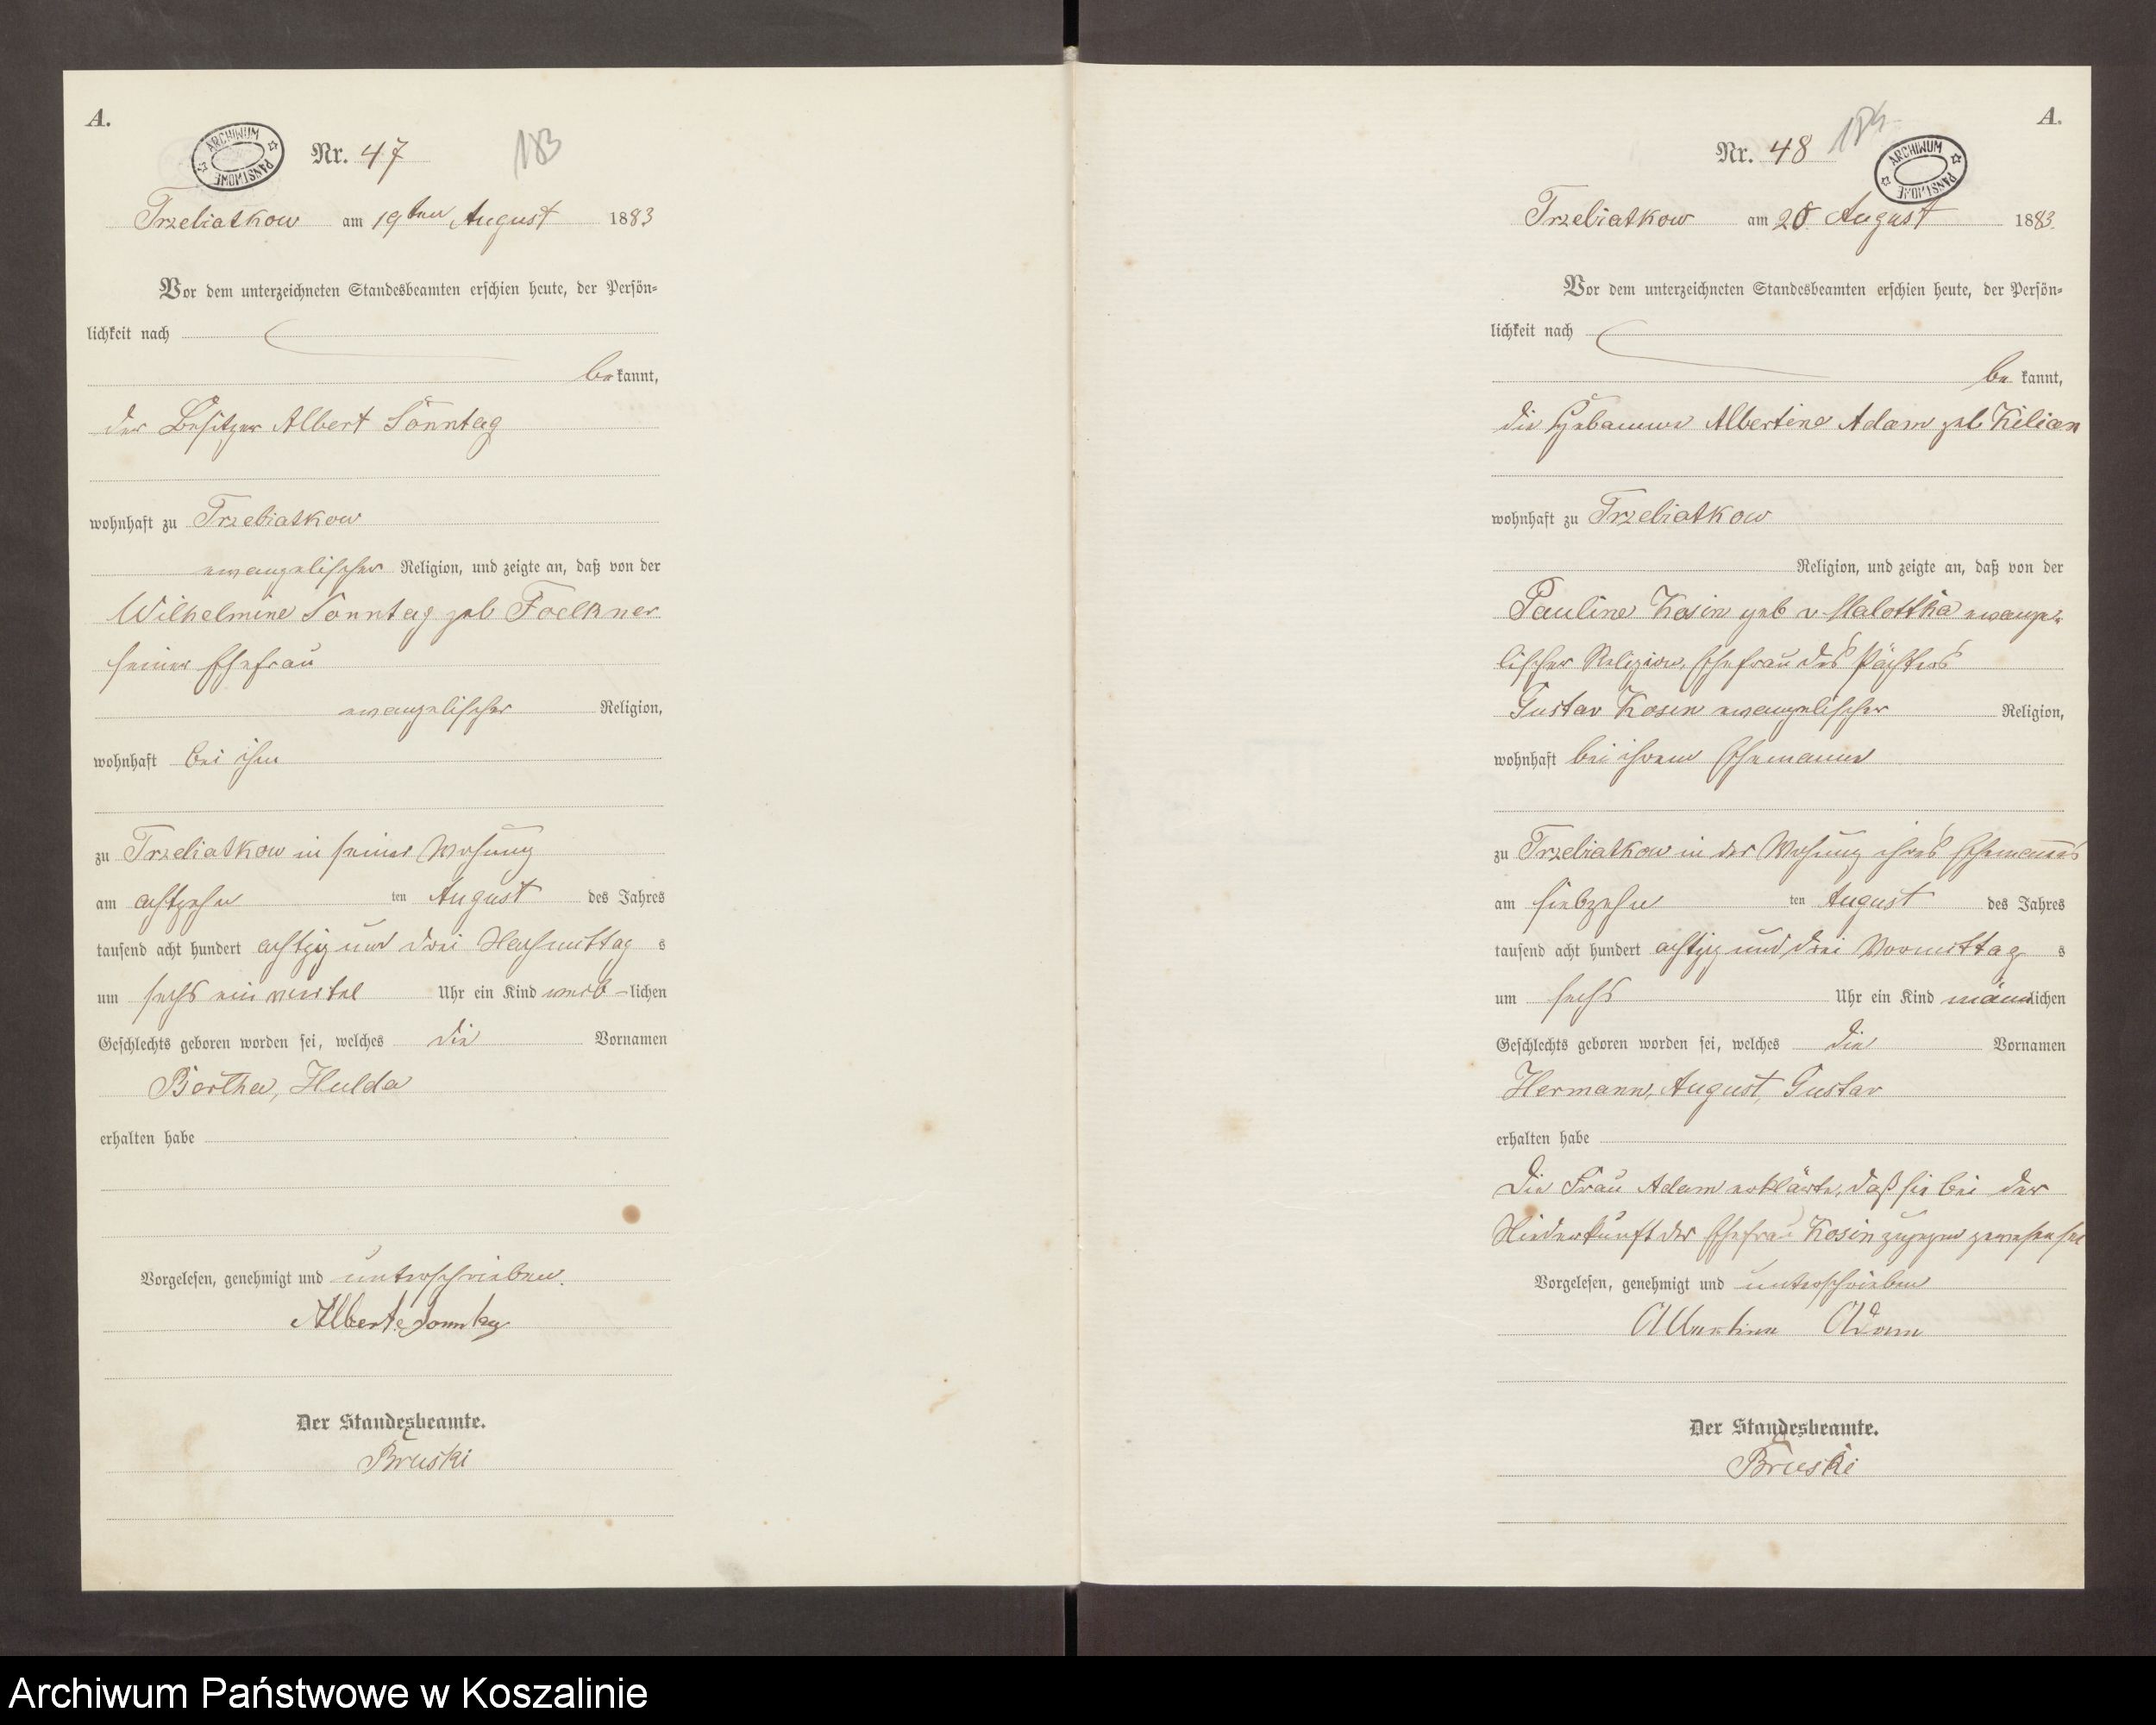 A.
ARCHIWUM PAŃSTWOWE
Nr. 47
183
Trzebiatkow am 19ten August 1883
Vor dem unterzeichneten Standesbeamten erschien heute, der Persön-
lichkeit nach
bekannt,
der Besitzer Albert Sonntag
wohnhaft zu Trzebiatkow
evangelischer Religion, und zeigte an, daß von der
Wilhelmine Sonntag geb Foelkner
seiner Ehefrau
evangelischer Religion,
wohnhaft bei ihm
zu Trzebiatkow in seiner Wohnung
am achtzehn ten August des Jahres
tausend acht hundert achtzig und drei Nachmittag s
um sechs ein viertel Uhr ein Kind weib-lichen
Geschlechts geboren worden sei, welches die Vornamen
Bertha, Hulda
erhalten habe
Vorgelesen, genehmigt und unterschrieben.
Albert Sonntag
Der Standesbeamte.
Bruski
A.
Nr. 48
184
ARCHIWUM PAŃSTWOWE
Trzebiatkow am 20 August 1883.
Vor dem unterzeichneten Standesbeamten erschien heute, der Persön-
lichkeit nach
be kannt,
die Hebamme Albertine Adam geb Kilian
wohnhaft zu Trzebiatkow
Religion, und zeigte an, daß von der
Pauline Kosin geb v Malottka evange-
lischer Religion, Ehefrau des Pächters
Gustav Kosin evangelischer Religion,
wohnhaft bei ihrem Ehemanne
zu Trzebiatkow in der Wohnung ihres Ehemannes
am siebzehn ten August des Jahres
tausend acht hundert achtzig und drei Vormittag s
um sechs Uhr ein Kind männlichen
Geschlechts geboren worden sei, welches die Vornamen
Hermann, August, Gustav
erhalten habe
Die Frau Adam erklärte, daß sie bei der
Niederkunft der Ehefrau Kosin zugegen gewesen sei
Vorgelesen, genehmigt und unterschrieben
Albertine Adam
Der Standesbeamte.
Bruski
Archiwum Państwowe w Koszalinie